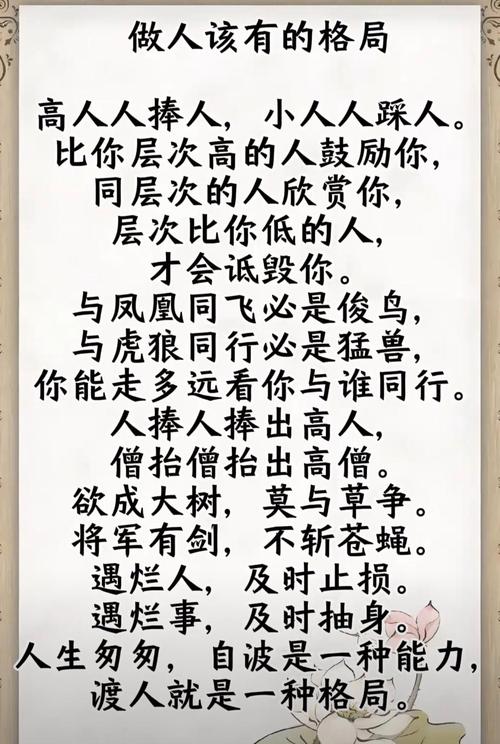 做人该有的格局
高人人捧人，小人人踩人。
比你层次高的人鼓励你，
同层次的人欣赏你，
层次比你低的人，
才会诋毁你。
与凤凰同飞必是俊鸟，
与虎狼同行必是猛兽，
你能走多远看你与谁同行。
人捧人捧出高人，
僧抬僧抬出高僧。
欲成大树，莫与草争。
将军有剑，不斩苍蝇。
遇烂人，及时止损。
遇烂事，及时抽身。
人生匆匆，自波是一种能力，
渡人就是一种格局。